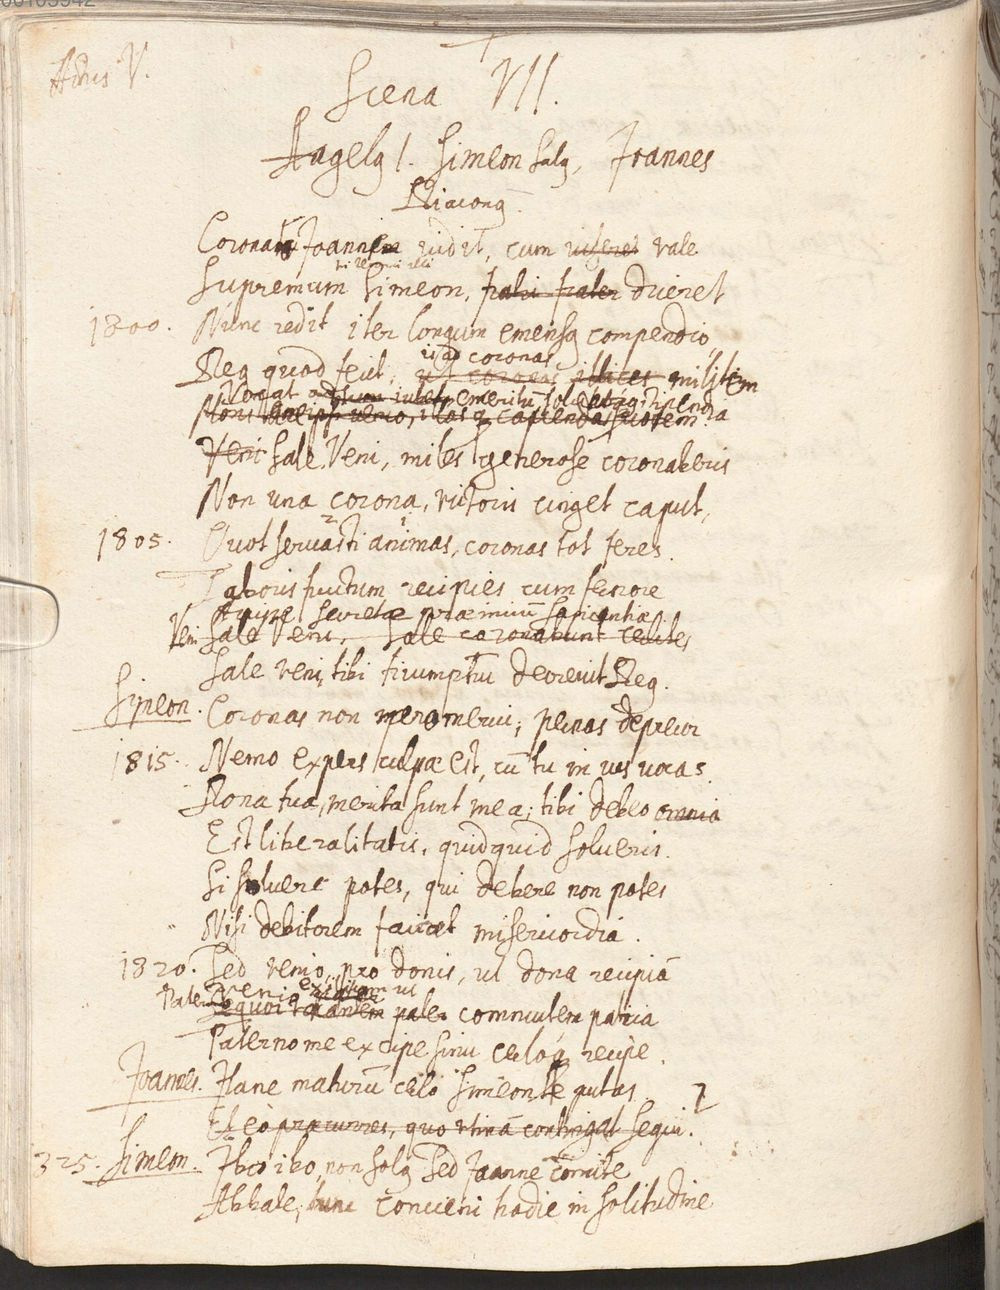 Actus V.
Scena VII.
Angelq 1. Simeon Salq, Joannes
Diaconq.
Coronatū Joannem vidit, cum viseret vale
Supremum Simeon, patri frater diceret
1800. Nunc redit iter longum emensq compendio,
Rex quod fecit, ut coronas illices militem
ut ad coronas
Vocat emeritū
Veni Sale Veni, miles generose coronaberis
Non una corona, victoris cinget caput,
1805. Quot servasti animas, coronas tot feres.
Laboris fructum recipies cum fenore
Accipe secretae praemium sapientiae
Veni Sale Veni, Sale coronabunt caelites
Sale veni, tibi triumphū decrevit Rex.
Simeon. Coronas non merui, penas deprecor
1815. Nemo expers culpae est, cū tu in ius vocas.
Dona tua, merita sunt mea; tibi debeo omnia
Est liberalitatis, quidquid solveris.
Si solvere potes, qui debere non potes
Nisi debitorem faciat misericordia.
1820. Sed venio, pro donis, ut dona recipiā
Pater venio ut
Sequor pater commutem patria
Paterno me excipe sinu recipe.
Joannes. Plane maturū celo Simeon te putas
Et eo praecurres, quo utinā contingat sequi.
325. Simeon. Ibo ibo, non solq sed Joanne comite
Abbate, hunc conveni hodie in solitudine